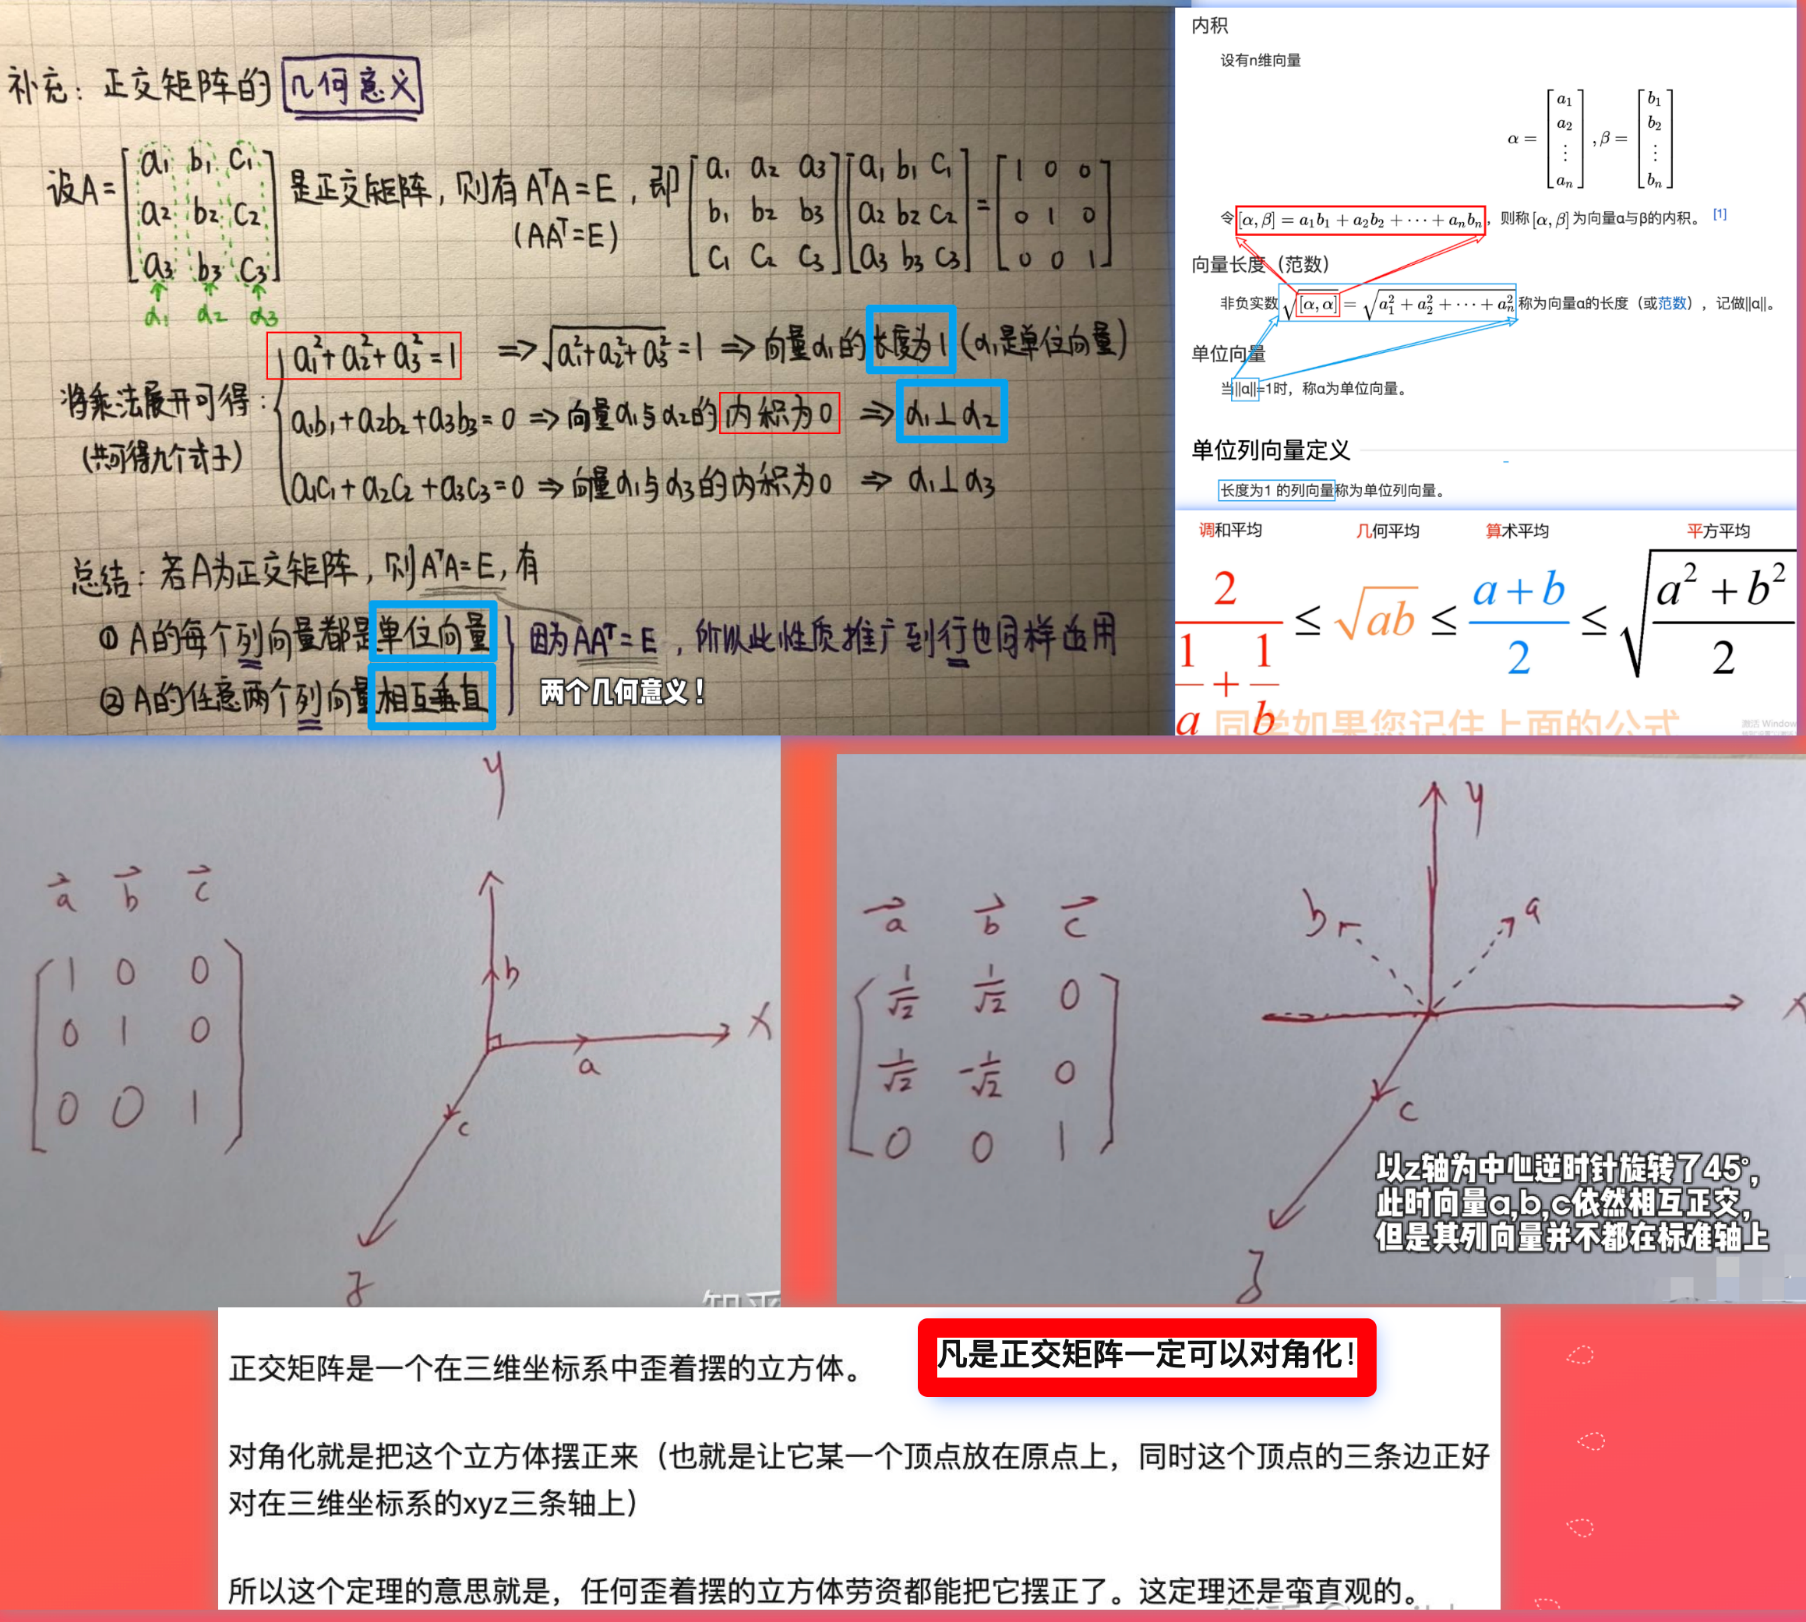 补充：正交矩阵的 几何意义
设A= [a₁ b₁ c₁ 是正交矩阵，则有 AᵀA=E，即 [a₁ a₂ a₃ [a₁ b₁ c₁ = [1 0 0
a₂ b₂ c₂ (AAᵀ=E) b₁ b₂ b₃ a₂ b₂ c₂ 0 1 0
a₃ b₃ c₃] c₁ c₂ c₃] a₃ b₃ c₃] 0 0 1]
α₁ α₂ α₃
将乘法展开可得：
(共可得九个式子)
a₁²+a₂²+a₃²=1 ⇒ √(a₁²+a₂²+a₃²)=1 ⇒ 向量α₁的长度为1 (α₁是单位向量)
a₁b₁+a₂b₂+a₃b₃=0 ⇒ 向量α₁与α₂的内积为0 ⇒ α₁⊥α₂
a₁c₁+a₂c₂+a₃c₃=0 ⇒ 向量α₁与α₃的内积为0 ⇒ α₁⊥α₃
总结：若A为正交矩阵，则AᵀA=E，有
① A的每个列向量都是单位向量
② A的任意两个列向量相互垂直
因为AAᵀ=E，所以此性质推广到行也同样适用
两个几何意义！
内积
设有n维向量
α = [a₁ a₂ ⋮ aₙ] , β = [b₁ b₂ ⋮ bₙ]
令[α, β] = a₁b₁ + a₂b₂ + ··· + aₙbₙ，则称[α, β]为向量α与β的内积。 [1]
向量长度（范数）
非负实数√[α, α] = √(a₁² + a₂² + ··· + aₙ²)称为向量α的长度（或范数），记做||α||。
单位向量
当||α||=1时，称α为单位向量。
单位列向量定义
长度为1 的列向量称为单位列向量。
调和平均 几何平均 算术平均 平方平均
2/(1/a + 1/b) ≤ √ab ≤ (a+b)/2 ≤ √((a²+b²)/2)
同学如果您记住上面的公式
激活 Window
y
a b c
1 0 0
0 1 0
0 0 1
b
x
a
c
z
知乎
y
b
a
a b c
1/√2 1/√2 0
1/√2 -1/√2 0
0 0 1
x
c
z
以z轴为中心逆时针旋转了45°，
此时向量a,b,c依然相互正交，
但是其列向量并不都在标准轴上
正交矩阵是一个在三维坐标系中歪着摆的立方体。
凡是正交矩阵一定可以对角化！
对角化就是把这个立方体摆正来（也就是让它某一个顶点放在原点上，同时这个顶点的三条边正好
对在三维坐标系的xyz三条轴上）
所以这个定理的意思就是，任何歪着摆的立方体劳资都能把它摆正了。这定理还是蛮直观的。